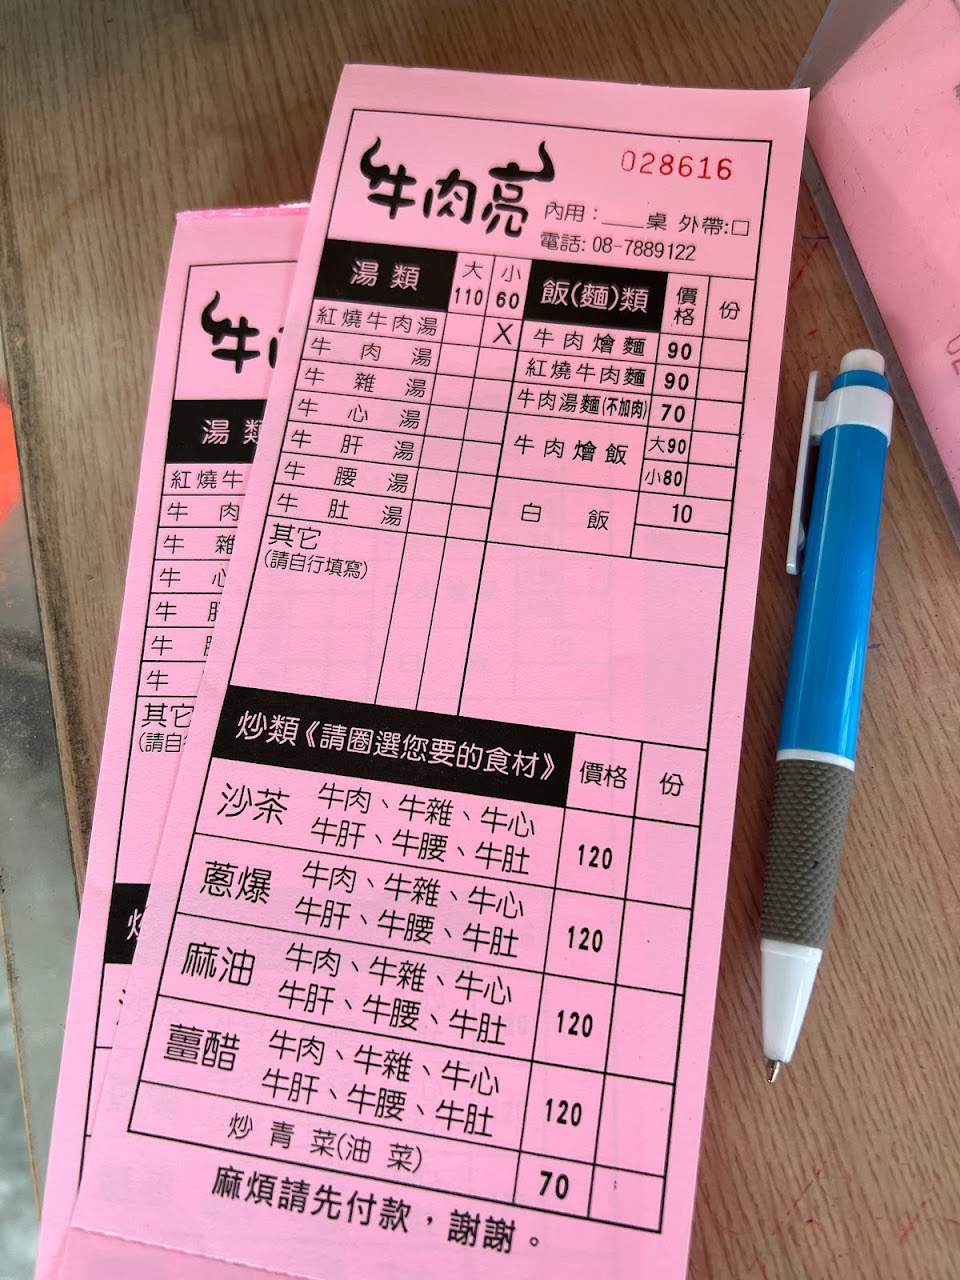 牛肉亮
028616
內用：___桌 外帶:□
電話: 08-7889122
湯類 大 110 小 60 飯(麵)類 價格 份
紅燒牛肉湯 X 牛肉燴麵 90
牛肉湯 紅燒牛肉麵 90
牛雜湯 牛肉湯麵(不加肉) 70
牛心湯 牛肉燴飯 大90
牛肝湯 小80
牛腰湯 白飯 10
牛肚湯
其它
(請自行填寫)
炒類《請圈選您要的食材》 價格 份
沙茶 牛肉、牛雜、牛心
牛肝、牛腰、牛肚 120
蔥爆 牛肉、牛雜、牛心
牛肝、牛腰、牛肚 120
麻油 牛肉、牛雜、牛心
牛肝、牛腰、牛肚 120
薑醋 牛肉、牛雜、牛心
牛肝、牛腰、牛肚 120
炒青菜(油菜) 70
麻煩請先付款，謝謝。
牛
湯類
紅燒牛
牛肉
牛雜
牛心
牛肝
牛
牛
其它
(請自